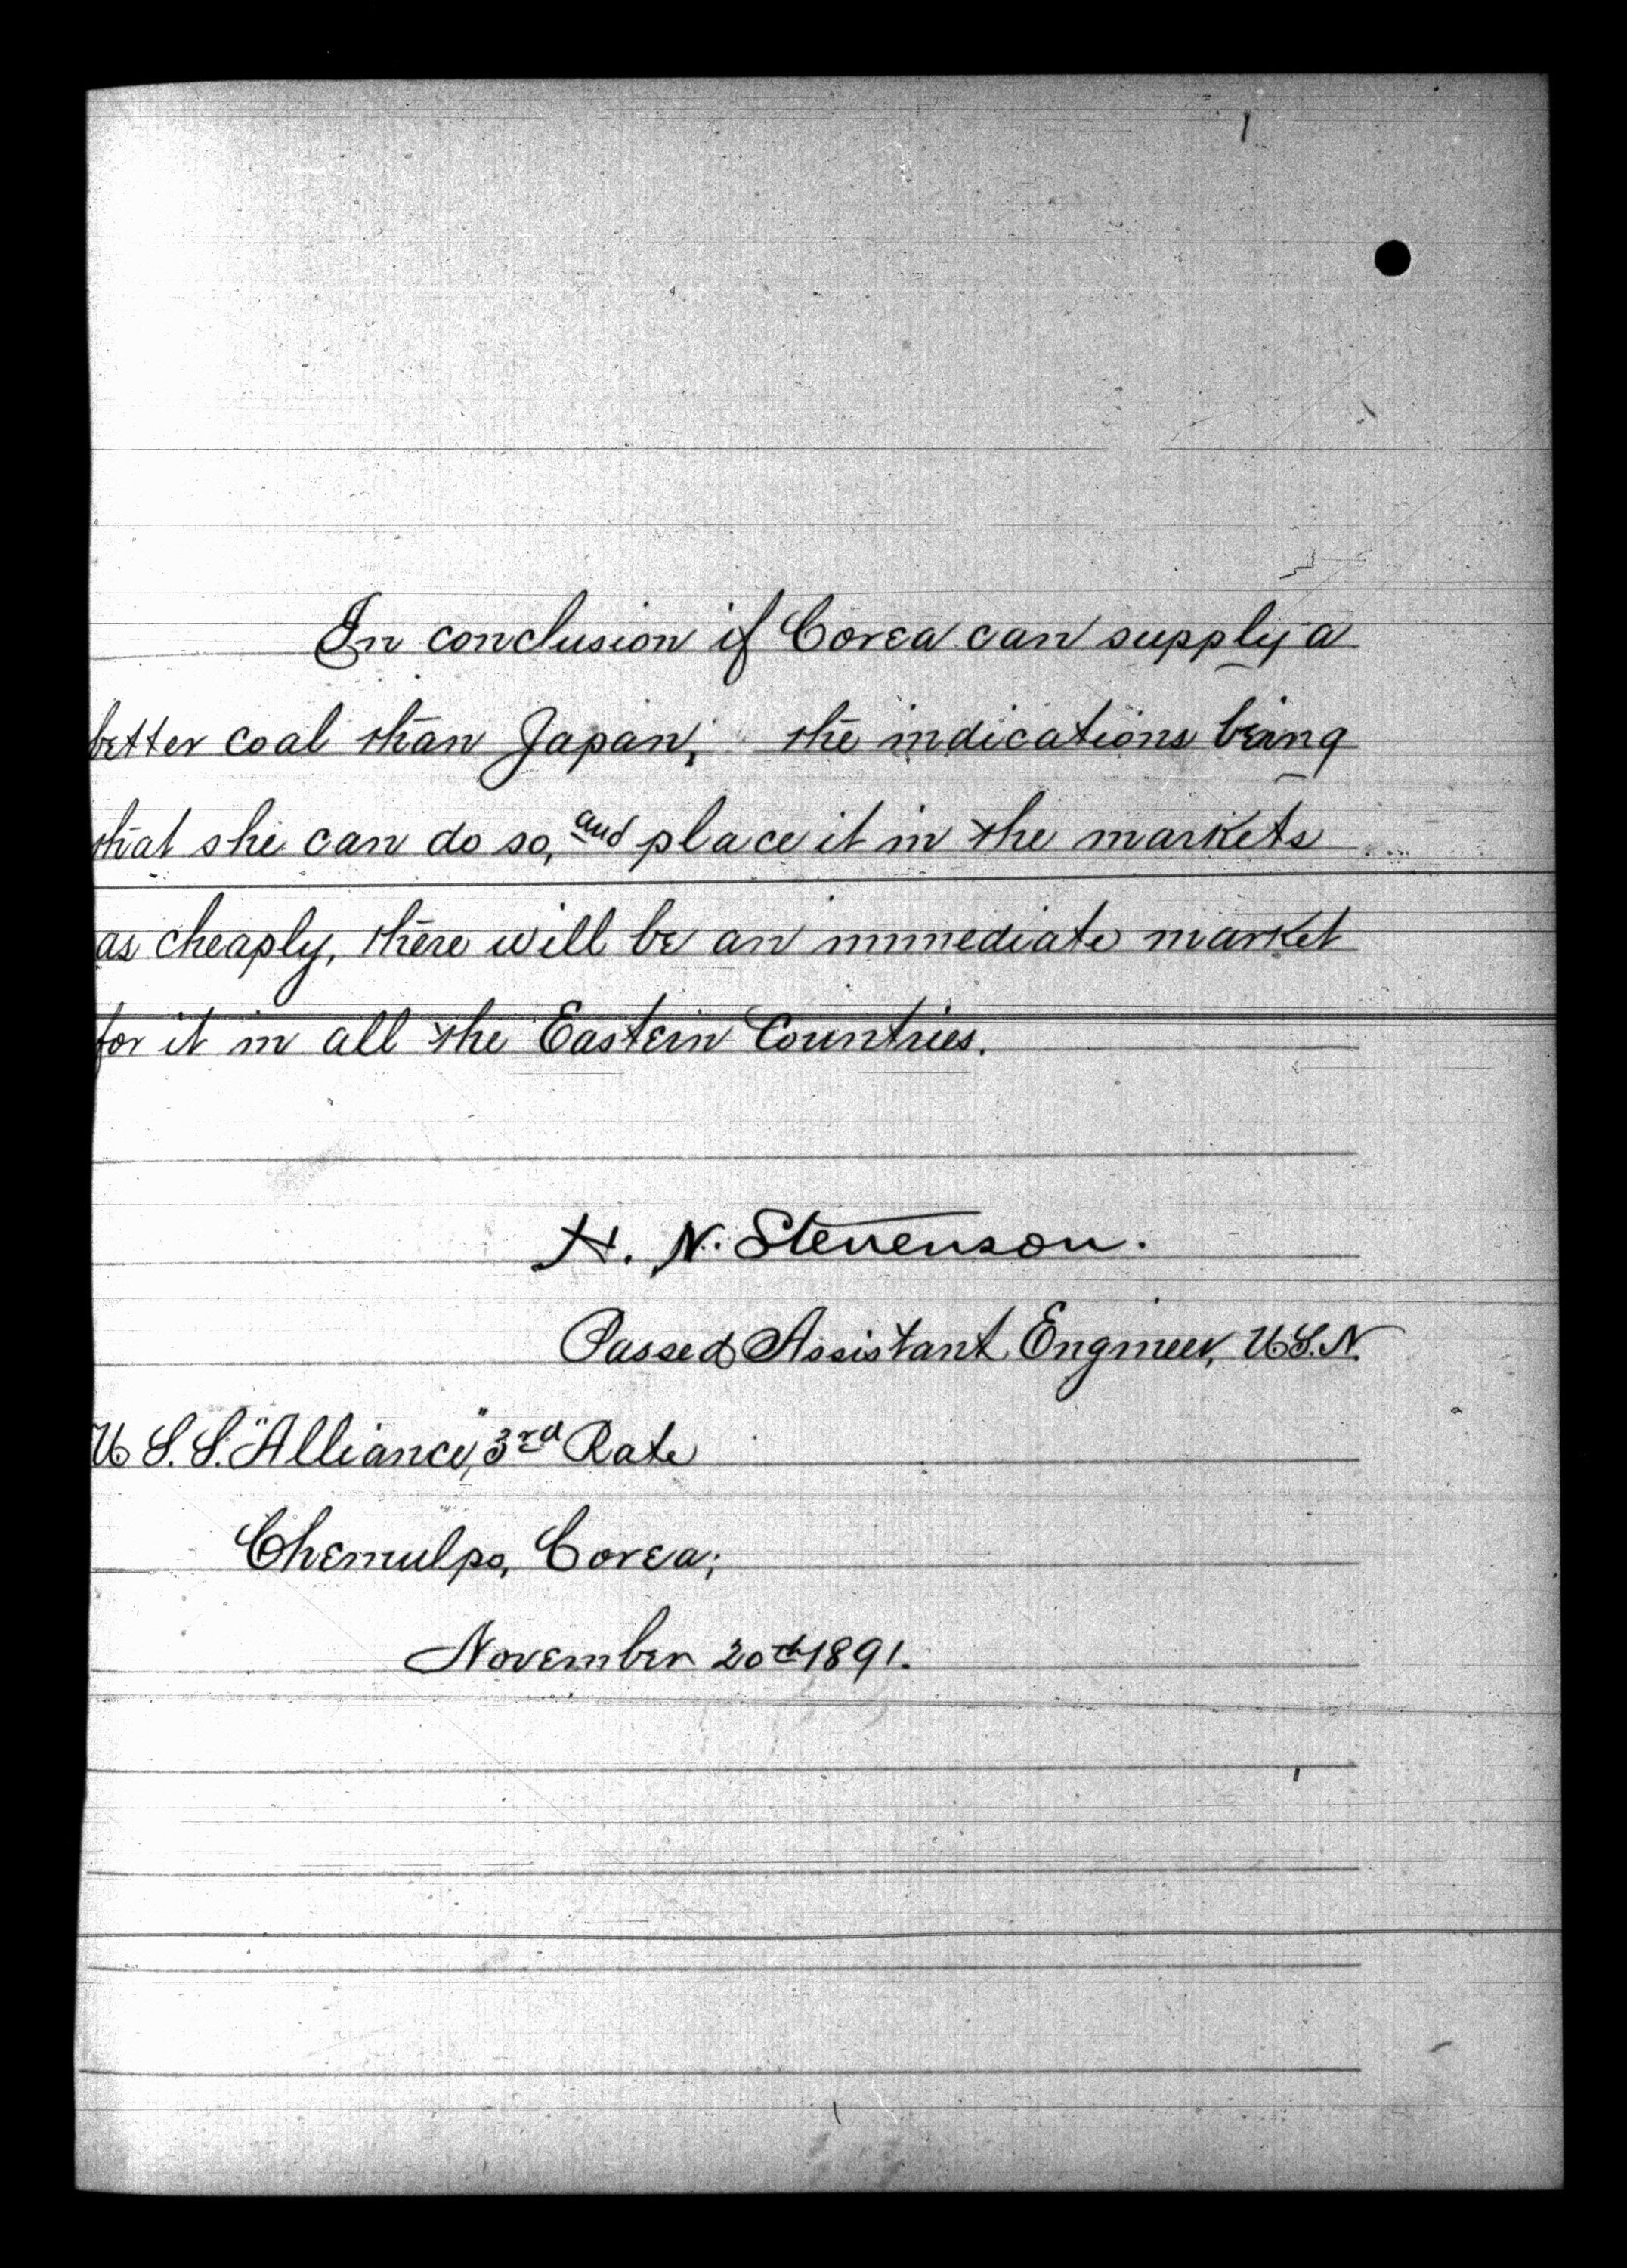 In conclusion if Corea can supply a
better coal than Japan, the indications being
that she can do so, and place it in the markets
as cheaply, there will be an immediate market
for it in all the Eastern Countries.
H. N. Stevenson.
Passed Assistant Engineer, U.S.N.
U.S.S. "Alliance," 3rd Rate
Chemulpo, Corea;
November 20th 1891.